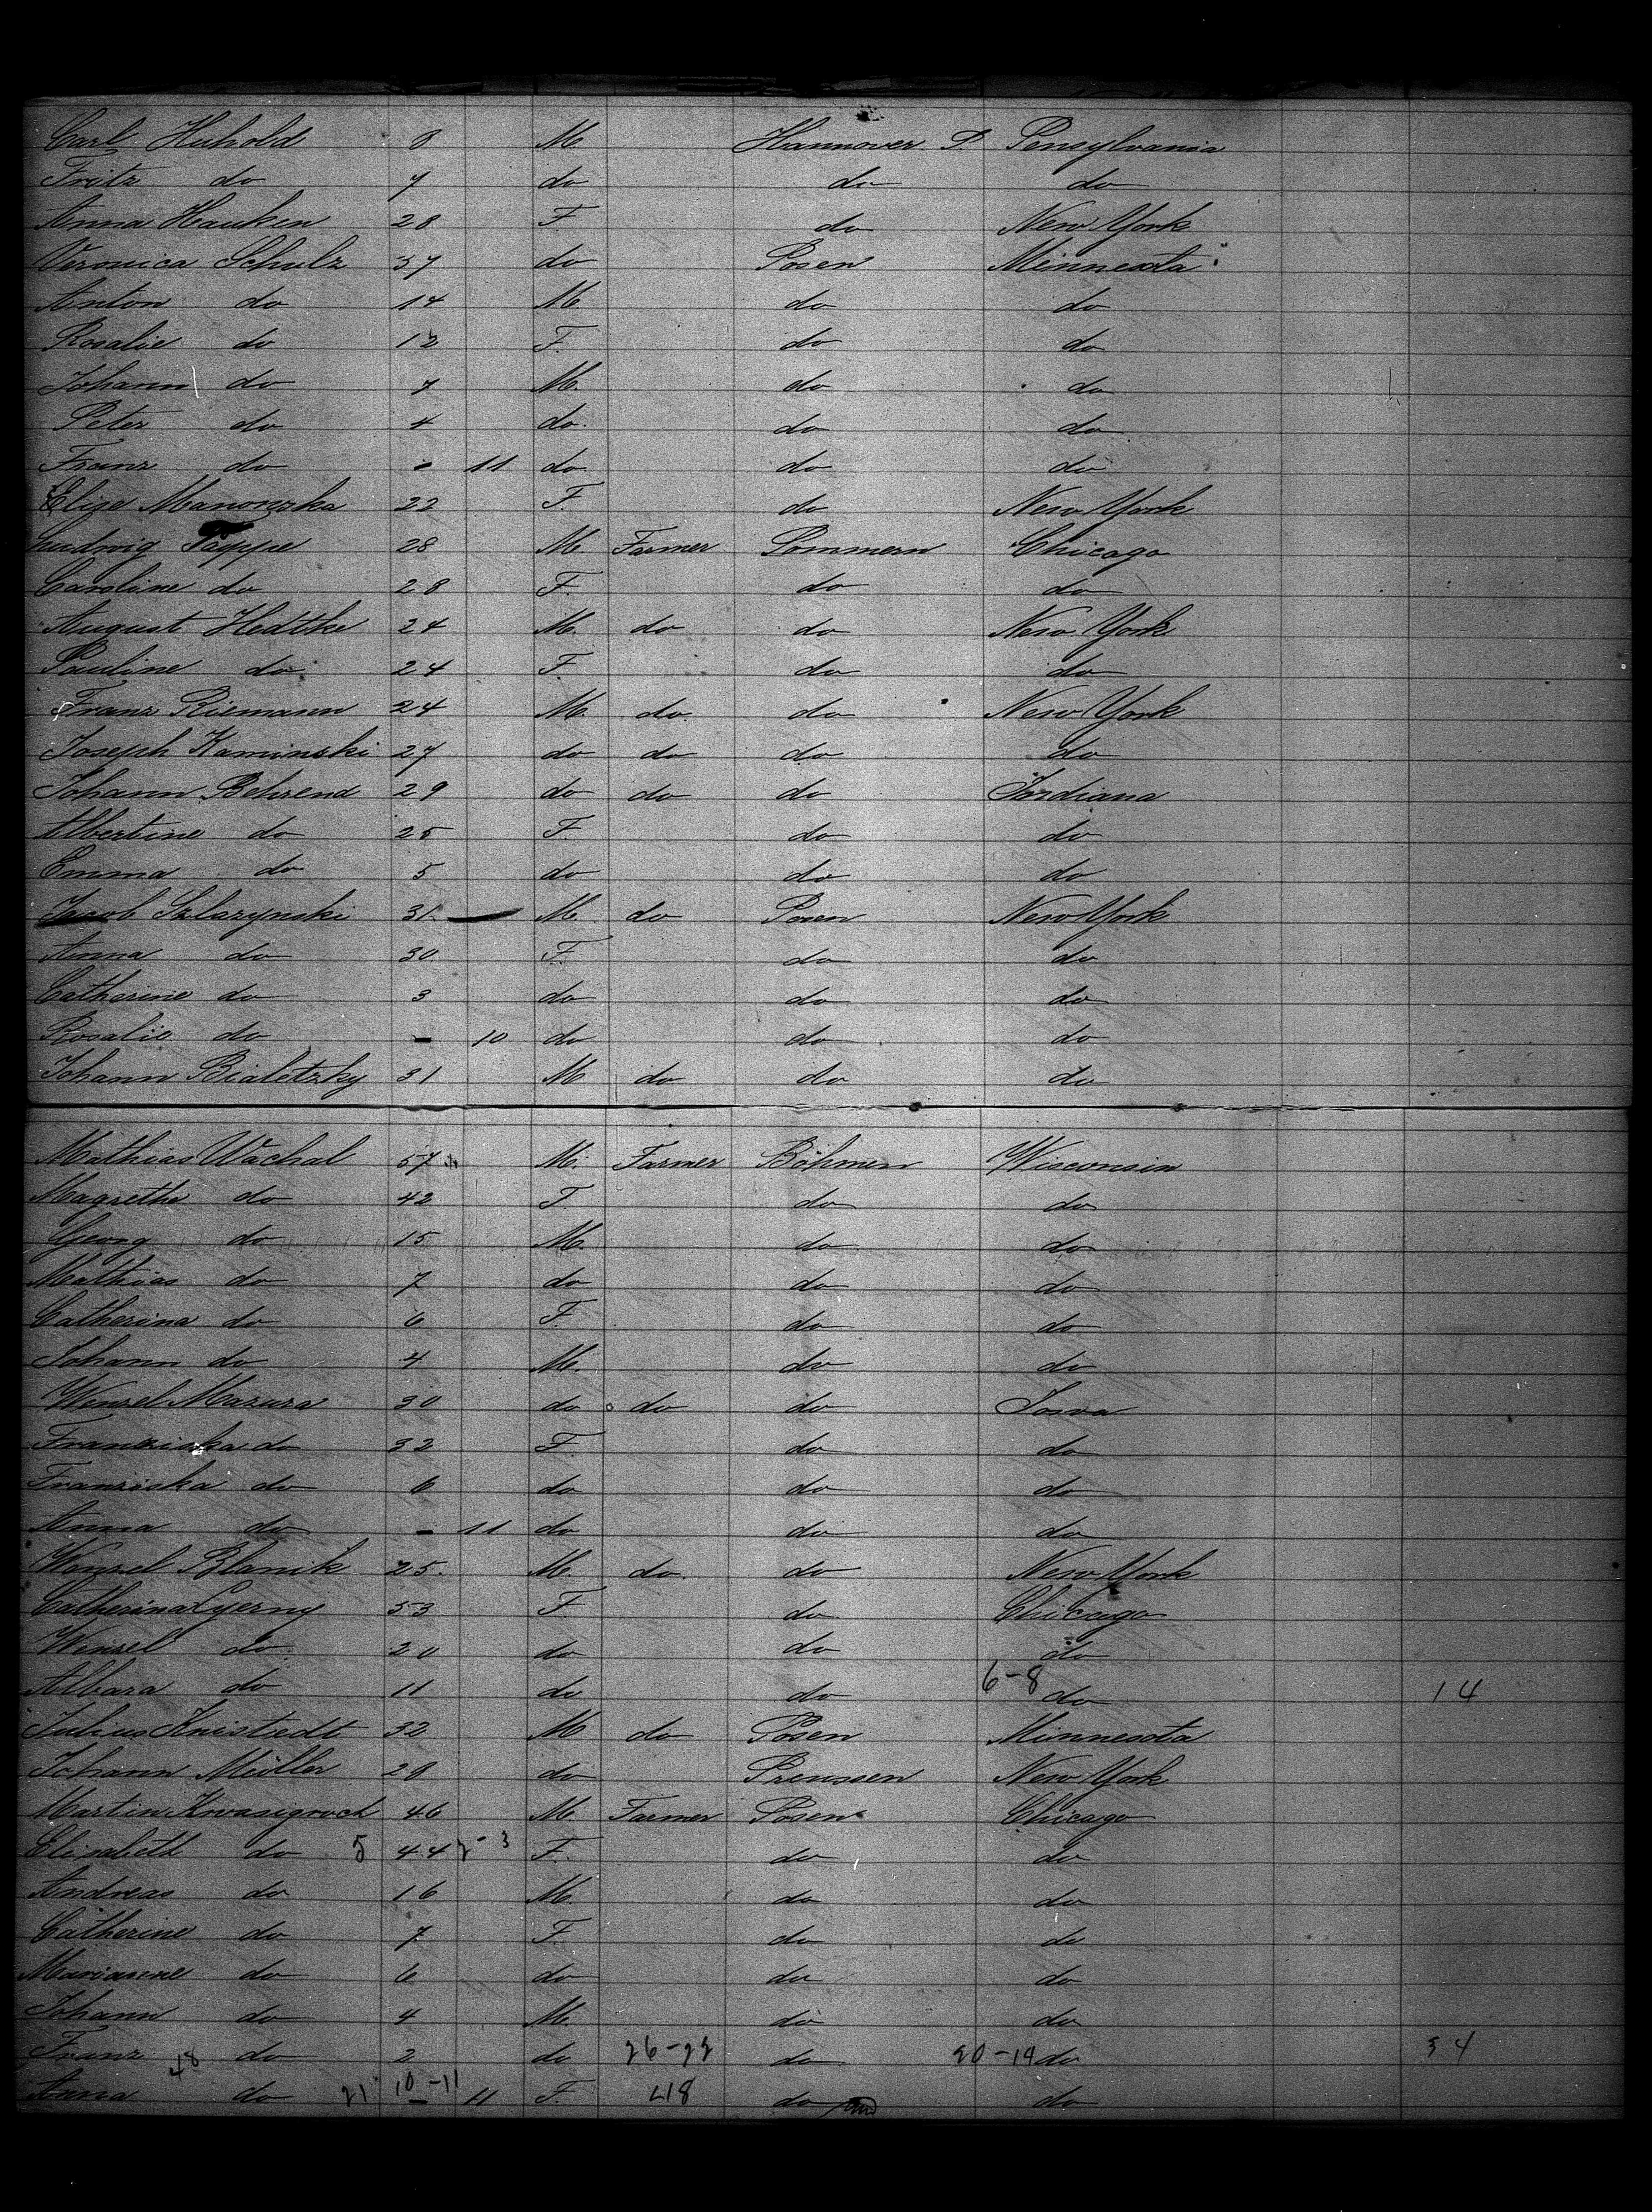 Carl Huhold 8 M Hannover P. Pensylvania
Fritz do 7 do do do
Anna Hauken 28 F. do New York
Veronica Schulz 37 do Posen Minnesota
Anton do 14 M. do do
Rosalie do 12 F. do do
Johann do 7 M. do do
Peter do 4 do. do do
Franz do - 11 do do do
Elise 22 F. do New York
Ludwig Tappe 28 M. Farmer Pommern Chicago
Caroline do 28 F. do do
August Hedtke 24 M. do do New York
Pauline do 24 F. do do
Franz Riemann 24 M. do do New York
Joseph Kaminski 27 do do do do
Johann Behrend 29 do do do Indiana
Albertine do 25 F. do do
Emma do 5 do do do
Jacob Szlazynski 31 M. do Posen New York
Anna do 30 F. do do
Catharine do 3 do do do
Rosalie do - 10 do do do
Johann Bialetzky 31 M do do do
Mathias Wachal 57 M. Farmer Böhmen Wisconsin
Magrethe do 42 F. do do
Georg do 15 M. do do
Mathias do 7 do do do
Catherina do 6 F. do do
Johann do 4 M. do do
Wenzel Mazura 30 do do do Iowa
Franziska do 32 F. do do
Franziska do 6 do do do
Anna do - 11 do do do
Wenzel Blanik 25. M. do. do New York
Catherina Cyerny 53 F. do Chicago
Wenzel do. 20 do do do
Albara do 11 do do 6-8 do 14
Julius Knistedt 32 M do Posen Minnesota
Johann Müller 28 do Preussen New York
Martin Kwasigroch 46 M. Farmer Posen Chicago
Elisabeth do 5 44 2-3 F. do do
Andreas do 16 M. do do
Catherine do 7 F do do
Marianne do 6 do do do
Johann do 4 M. do do
Franz do 2 do 26-22 do 20-14 do 34
Anna 48 do 21 10-11 - 11 F. 218 do do